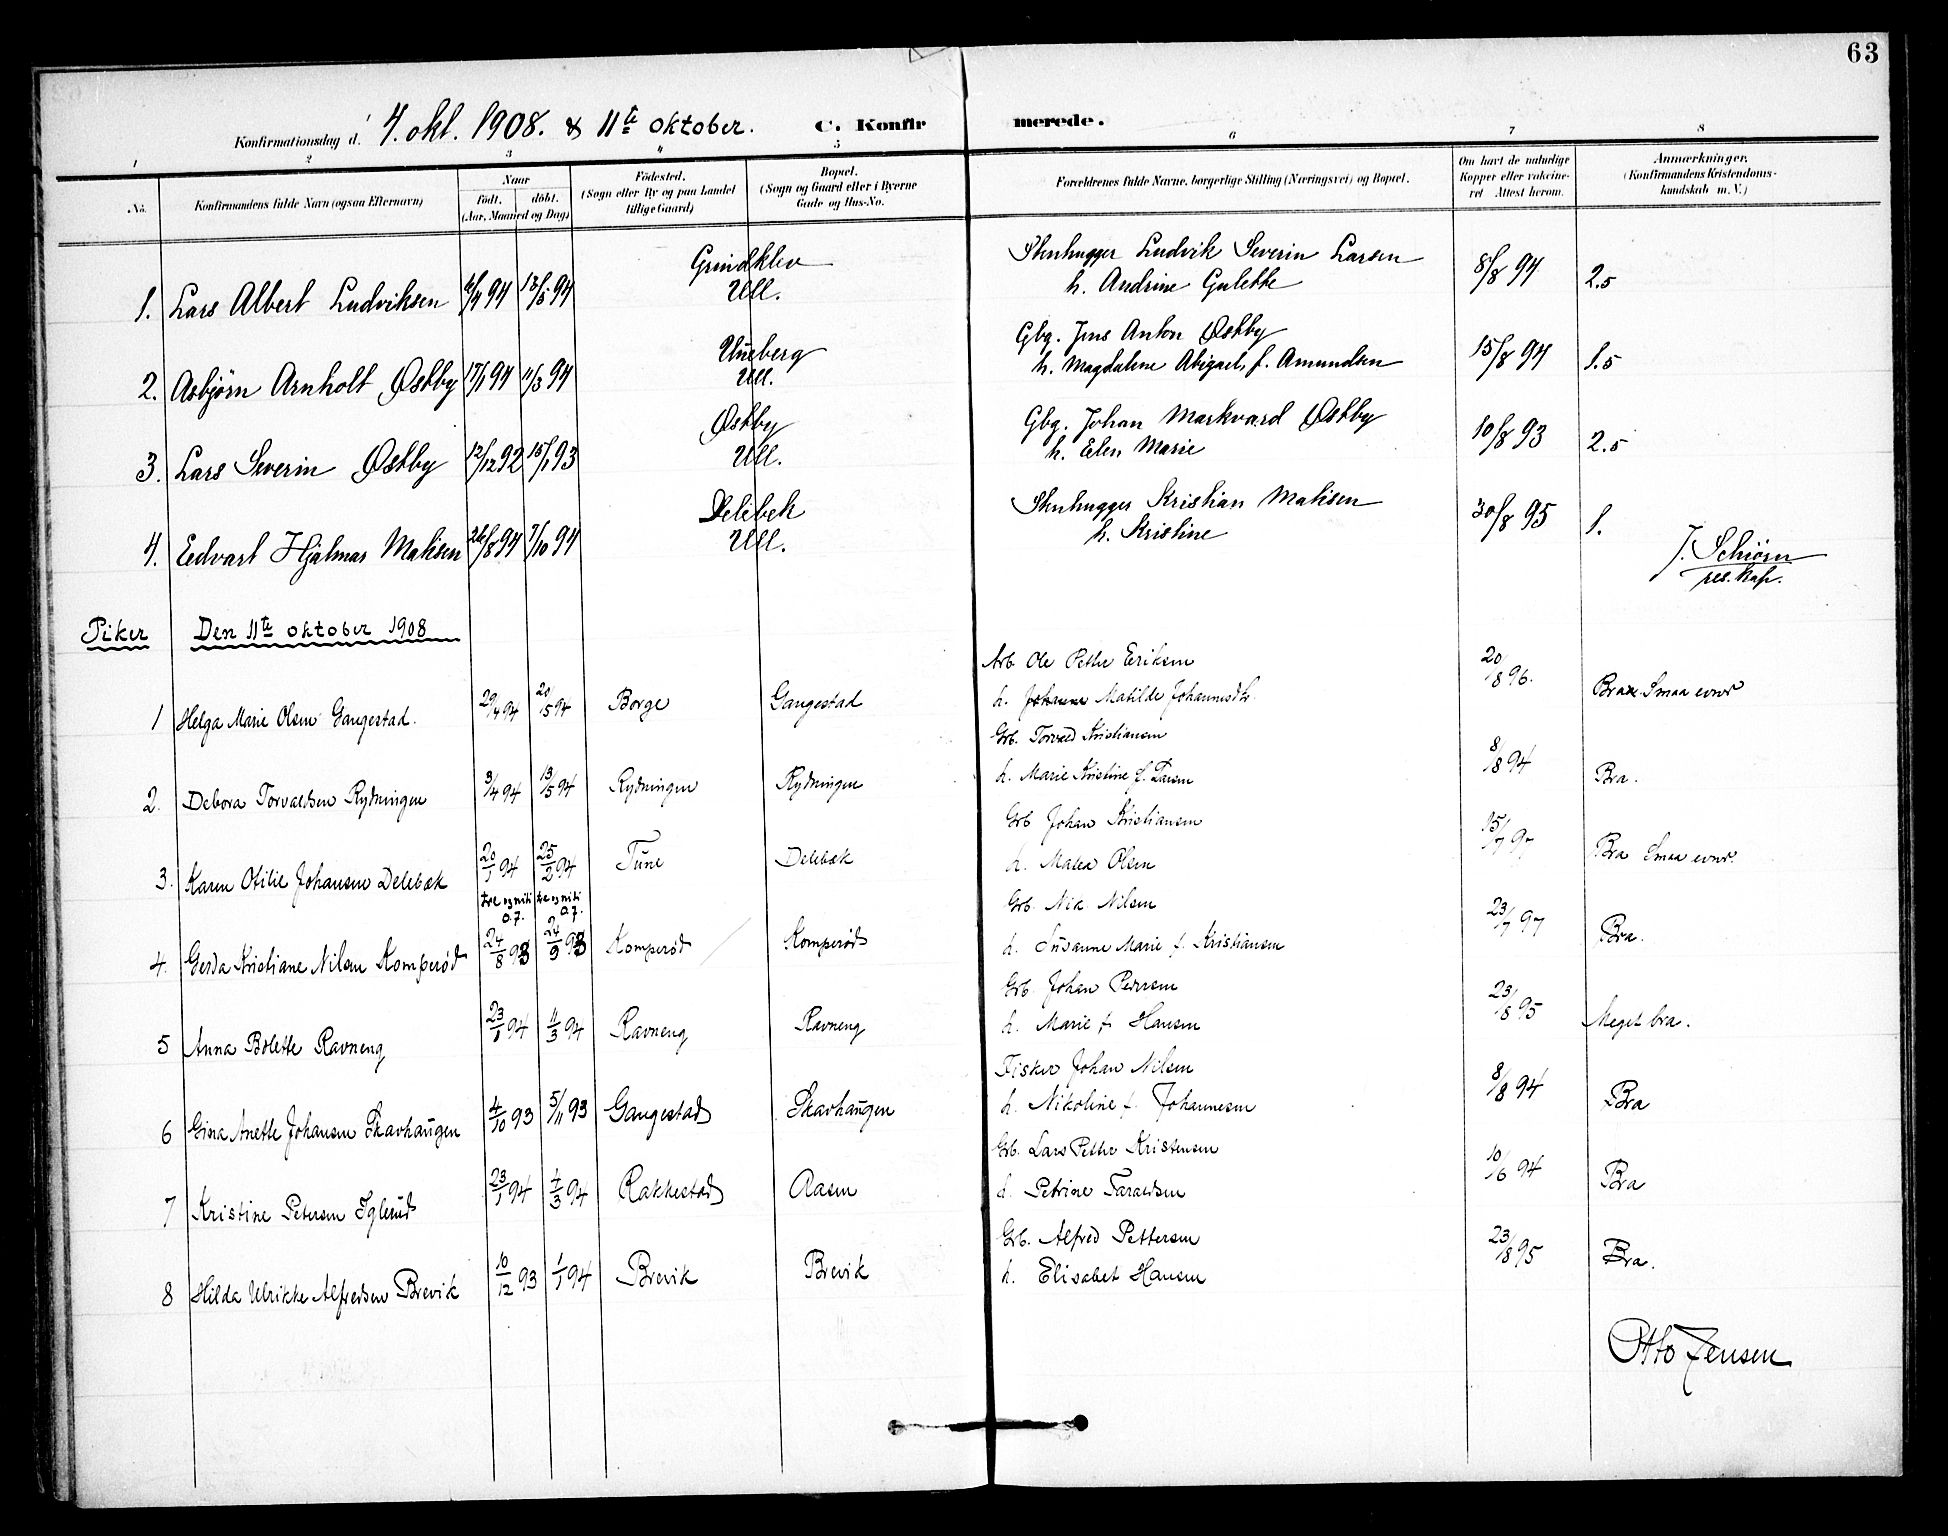 63
Konfirmationsdag d. 4. okt. 1908. & 11te oktober. C. Konfirmerede.
1 2 3 4 5 6 7 8
No. Konfirmandens fulde Navn (ogsaa Efternavn) Naar født. døbt. (Aar, Maaned og Dag) Fødested. (Sogn eller By og paa Landet tillige Gaard) Bopæl. (Sogn og Gaard eller i Byerne Gade og Hus-No. Forældrenes fulde Navne, borgerlige Stilling (Næringsvei) og Bopæl. Om havt de naturlige Kopper eller vakcineret Attest herom. Anmærkninger. (Konfirmandens Kristendomskundskab m. V.)
Grindklev Stenhugger Ludvik Severin Larsen
1. Lars Albert Ludviksen 6/4 94 13/5 94 Ull. h. Andrine Gulekke 8/8 94 2.5
Uneberg Gbg. Jens Anton Østby
2. Asbjørn Arnholt Østby 17/1 94 11/3 94 Ull. h. Magdalene Abigael, f. Amundsen 15/8 94 1.5
Østby Gbg. Johan Markvard Østby
3. Lars Severin Østby 12/12 92 15/1 93 Ull. h. Elen Marie 10/8 93 2.5
Delebek Stenhugger Kristian Matisen
4. Edvart Hjalmar Matisen 26/8 94 7/10 94 Ull. h. Kristine 30/8 95 1.
J. Schiørn
res. kap.
Piker Den 11te oktober 1908
Arb. Ole Petter Eriksen
1 Helga Marie Olsen Gangestad. 29/4 94 20/5 94 Borge Gangestad h. Johanne Matilde Johannesdtr. 20/8 96. Bra. Smaa evner
Grb. Torvald Kristiansen
2. Debora Torvaldsen Rydningen 3/4 94 13/5 94 Rydningen Rydningen h. Marie Kristine f. Larsen 8/8 94 Bra.
Grb Johan Kristiansen
3. Karen Otilie Johansen Delebæk 20/1 94 25/2 94 Tune Delebæk h. Matea Olsen 15/7 97 Bra Smaa evner.
tre og niti O.J. tre og niti O.J. Grb. Nik. Nilsen
4. Gerda Kristiane Nilsen Komperød 24/8 93 24/9 93 Komperød Komperød h. Susanne Marie f. Kristiansen 23/7 97 Bra.
Grb. Johan Pedersen
5 Anna Bolette Ravneng 23/1 94 11/3 94 Ravneng Ravneng h. Marie f. Hansen 23/8 95 Meget bra.
Fisker Johan Nilsen
6 Gina Anette Johansen Skavhaugen 4/10 93 5/11 93 Gangestad Skavhaugen h. Nikoline f. Johannesen 8/8 94 Bra
Grb. Lars Petter Kristensen
7 Kristine Petersen Iglerud 23/1 94 4/3 94 Rakkestad Aasen h. Petrine Taraldsen 10/6 94 Bra
Grb. Alfred Pettersen
8 Hilda Ulrikke Alfredsen Brevik 10/12 93 1/1 94 Brevik Brevik h. Elisabet Hansen 23/8 95 Bra.
Otto Jensen